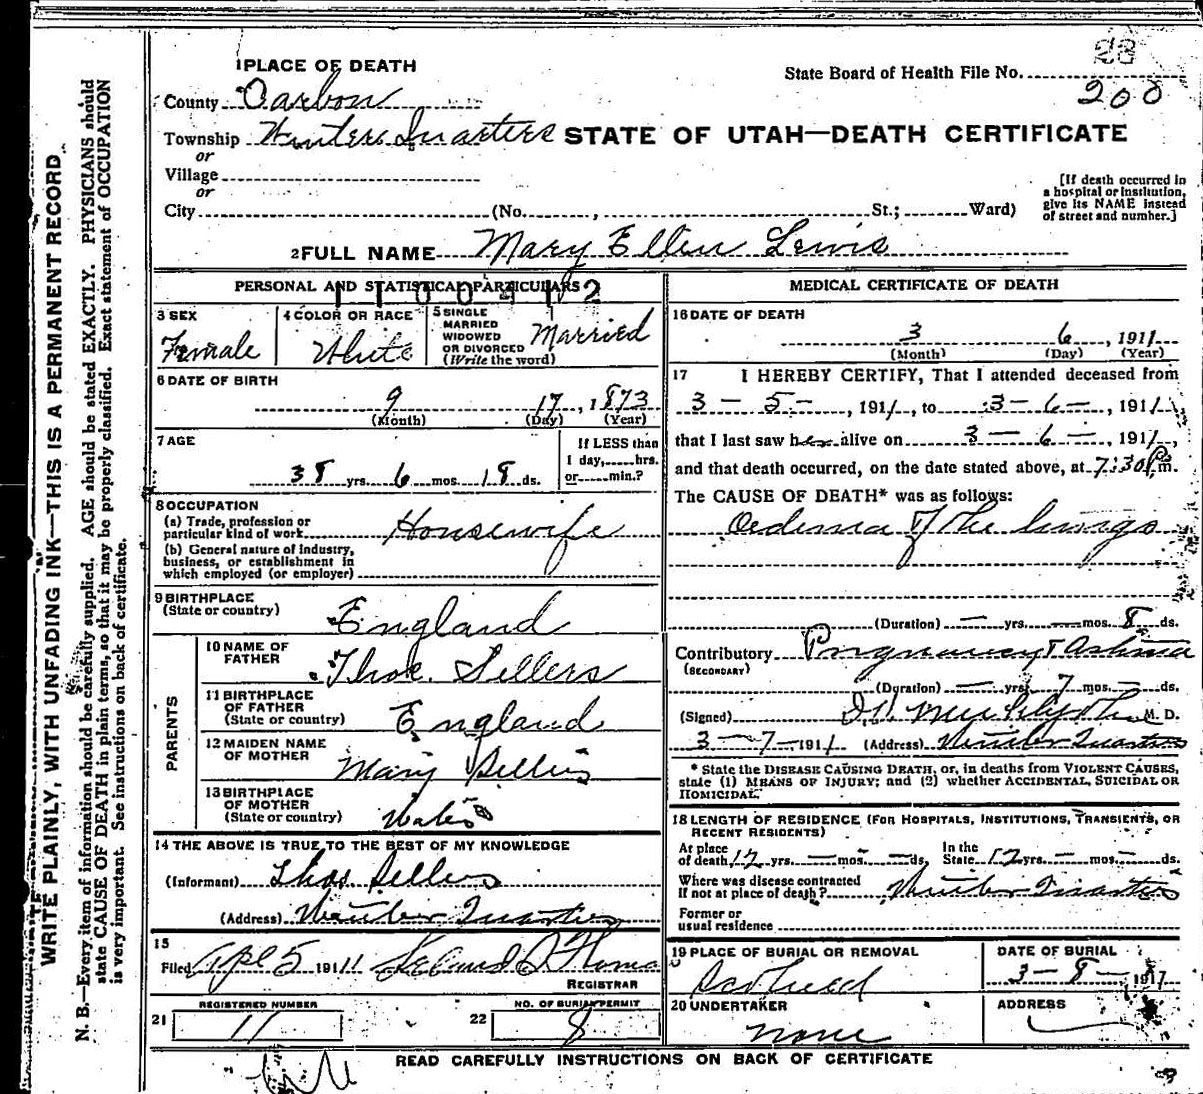 23
1 PLACE OF DEATH
State Board of Health File No.
200
County Carbon
Township Winter Quarters STATE OF UTAH—DEATH CERTIFICATE
or
Village
or
City (No. , St.; Ward)
[If death occurred in a hospital or institution, give its NAME instead of street and number.]
2 FULL NAME Mary Ellen Lewis
PERSONAL AND STATISTICAL PARTICULARS
3 SEX
Female
4 COLOR OR RACE
White
5 SINGLE
MARRIED
WIDOWED
OR DIVORCED
(Write the word)
Married
6 DATE OF BIRTH
9 17, 1873
(Month) (Day) (Year)
7 AGE
38 yrs. 6 mos. 18 ds.
If LESS than
1 day, hrs.
or min.?
8 OCCUPATION
(a) Trade, profession or
particular kind of work Housewife
(b) General nature of industry,
business, or establishment in
which employed (or employer)
9 BIRTHPLACE
(State or country) England
PARENTS
10 NAME OF
FATHER Thos. Sellers
11 BIRTHPLACE
OF FATHER
(State or country) England
12 MAIDEN NAME
OF MOTHER Mary Sellers
13 BIRTHPLACE
OF MOTHER
(State or country) Wales
14 THE ABOVE IS TRUE TO THE BEST OF MY KNOWLEDGE
(Informant) Thos Sellers
(Address) Winter Quarters
15
Filed Apl 5 1911
REGISTRAR
REGISTERED NUMBER
21 11
NO. OF BURIAL PERMIT
22 8
MEDICAL CERTIFICATE OF DEATH
16 DATE OF DEATH
3 6, 1911
(Month) (Day) (Year)
17 I HEREBY CERTIFY, That I attended deceased from
3 – 5 –, 1911, to 3 – 6 –, 1911,
that I last saw her alive on 3 – 6 –, 1911,
and that death occurred, on the date stated above, at 7:30 P m.
The CAUSE OF DEATH* was as follows:
Oedema of the lungs
(Duration) — yrs. — mos. 8 ds.
Contributory Pregnancy & Asthma
(SECONDARY)
(Duration) — yrs. 7 mos. — ds.
(Signed) M. D.
3 – 7 – 1911 (Address) Winter Quarters
* State the DISEASE CAUSING DEATH, or, in deaths from VIOLENT CAUSES,
state (1) MEANS OF INJURY; and (2) whether ACCIDENTAL, SUICIDAL OR
HOMICIDAL.
18 LENGTH OF RESIDENCE (FOR HOSPITALS, INSTITUTIONS, TRANSIENTS, OR
RECENT RESIDENTS)
At place
of death 12 yrs. — mos. — ds.
In the
State 12 yrs. — mos. — ds.
Where was disease contracted
if not at place of death? Winter Quarters
Former or
usual residence
19 PLACE OF BURIAL OR REMOVAL
Scofield
DATE OF BURIAL
3 – 8 – 1911
20 UNDERTAKER
none
ADDRESS
READ CAREFULLY INSTRUCTIONS ON BACK OF CERTIFICATE
WRITE PLAINLY, WITH UNFADING INK—THIS IS A PERMANENT RECORD
N. B.—Every item of information should be carefully supplied. AGE should be stated EXACTLY. PHYSICIANS should
state CAUSE OF DEATH in plain terms, so that it may be properly classified. Exact statement of OCCUPATION
is very important. See instructions on back of certificate.